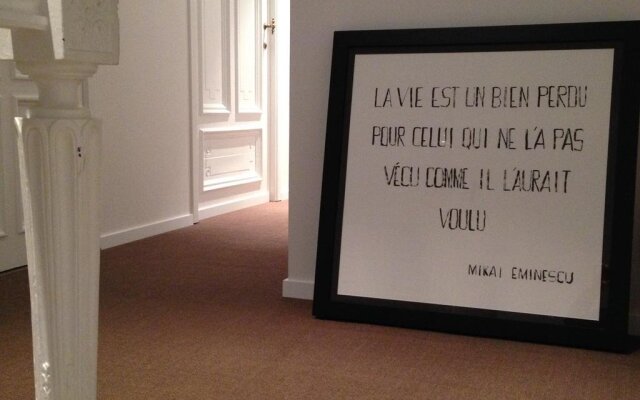 LA VIE EST UN BIEN PERDU
POUR CELUI QUI NE L'A PAS
VÉCU COMME IL L'AURAIT
VOULU
MIKAI EMINESCU